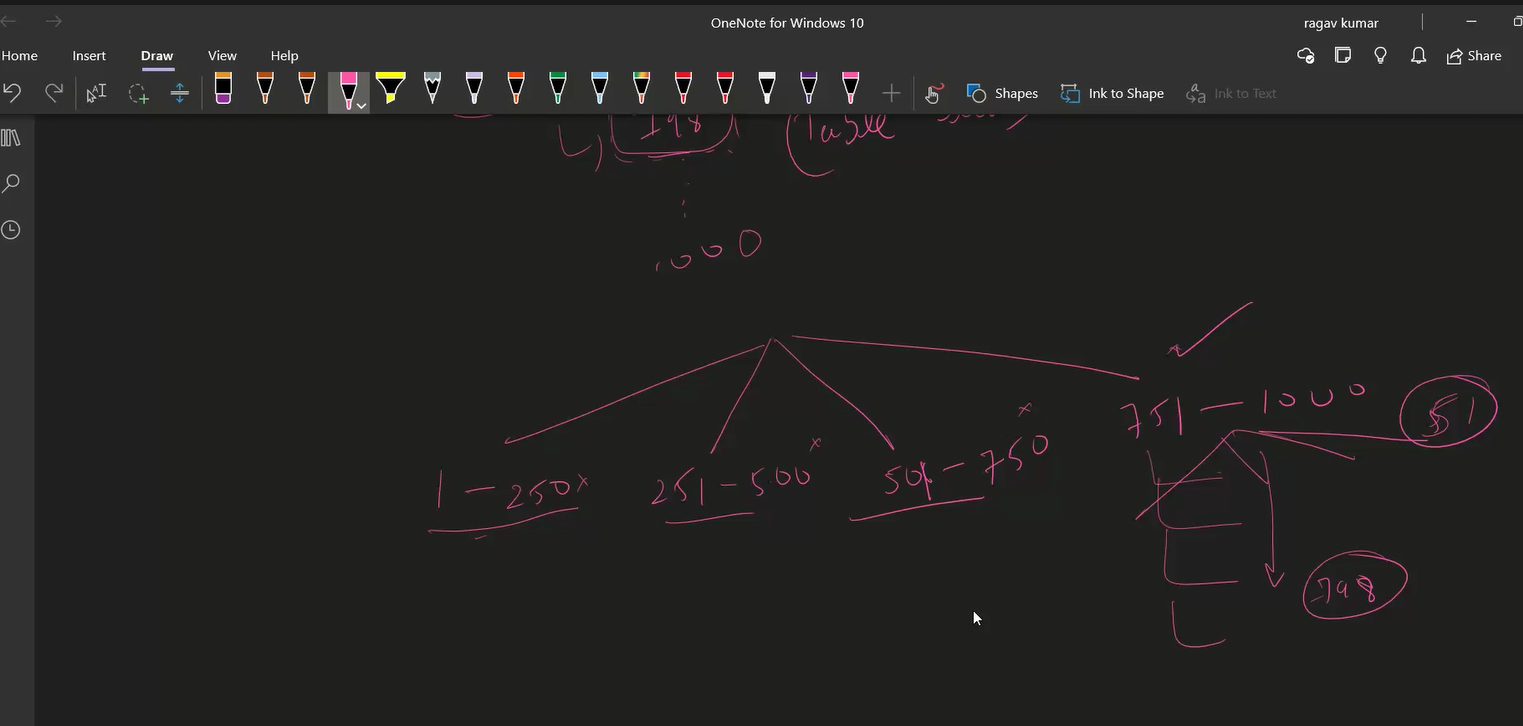 OneNote for Windows 10
ragav kumar
Home Insert Draw View Help
Share
Shapes Ink to Shape Ink to Text
798 (Table
1000
751 - 1000 51
1 - 250 x 251 - 500 x 501 - 750 x
798